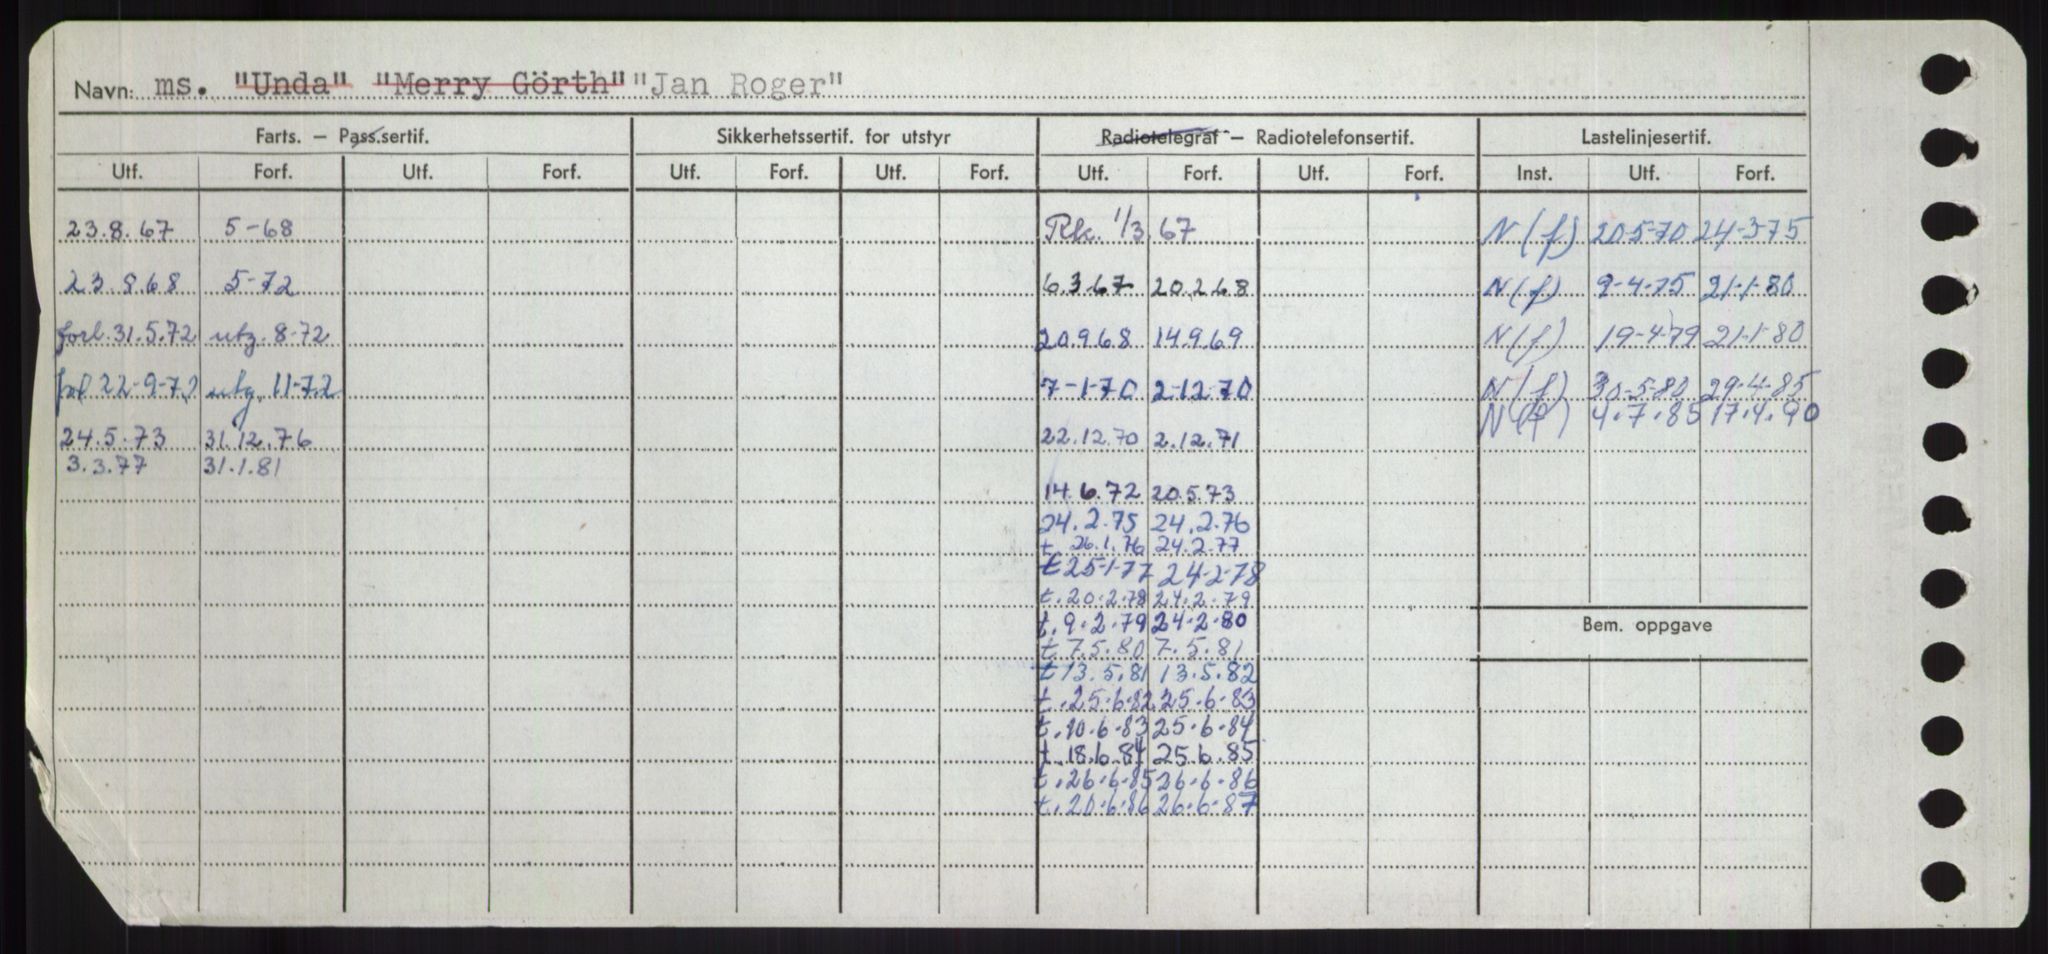 Navn: ms. "Unda" "Merry Görth" "Jan Roger"
Farts. – Pass.sertif. Sikkerhetssertif. for utstyr Radiotelegraf – Radiotelefonsertif. Lastelinjesertif.
Utf. Forf. Utf. Forf. Utf. Forf. Utf. Forf. Utf. Forf. Utf. Forf. Inst. Utf. Forf.
23.8.67 5-68 Rk. 1/3.67 N(f) 20-5-70 24-3-75
23.8.68 5-72 6.3.67 20.2.68 N(f) 9-4-75 21-1-80
forl. 31.5.72 utg. 8-72 20.9.68 14.9.69 N(f) 19-4-79 21-1-80
forl 22-9-72 utg. 11-72 7-1-70 2-12-70 N(f) 30-5-80 29-4-85
N(f) 4.7.85 17.4.90
24.5.73 31.12.76 22.12.70 2.12.71
3.3.77 31.1.81
14.6.72 20.5.73
24.2.75 24.2.76
t. 26.1.76 24.2.77
t 25-1-77 24-2-78
t. 20.2.78 24.2.79
t. 9.2.79 24.2.80
Bem. oppgave
t 7.5.80 7.5.81
t 13.5.81 13.5.82
t. 25.6.82 25.6.83
t. 10.6.83 25.6.84
t. 18.6.84 25.6.85
t. 26.6.85 26.6.86
t. 20.6.86 26.6.87